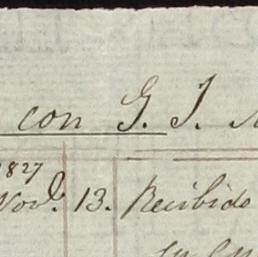 con G. J.
1827
Novе. 13. Recibido